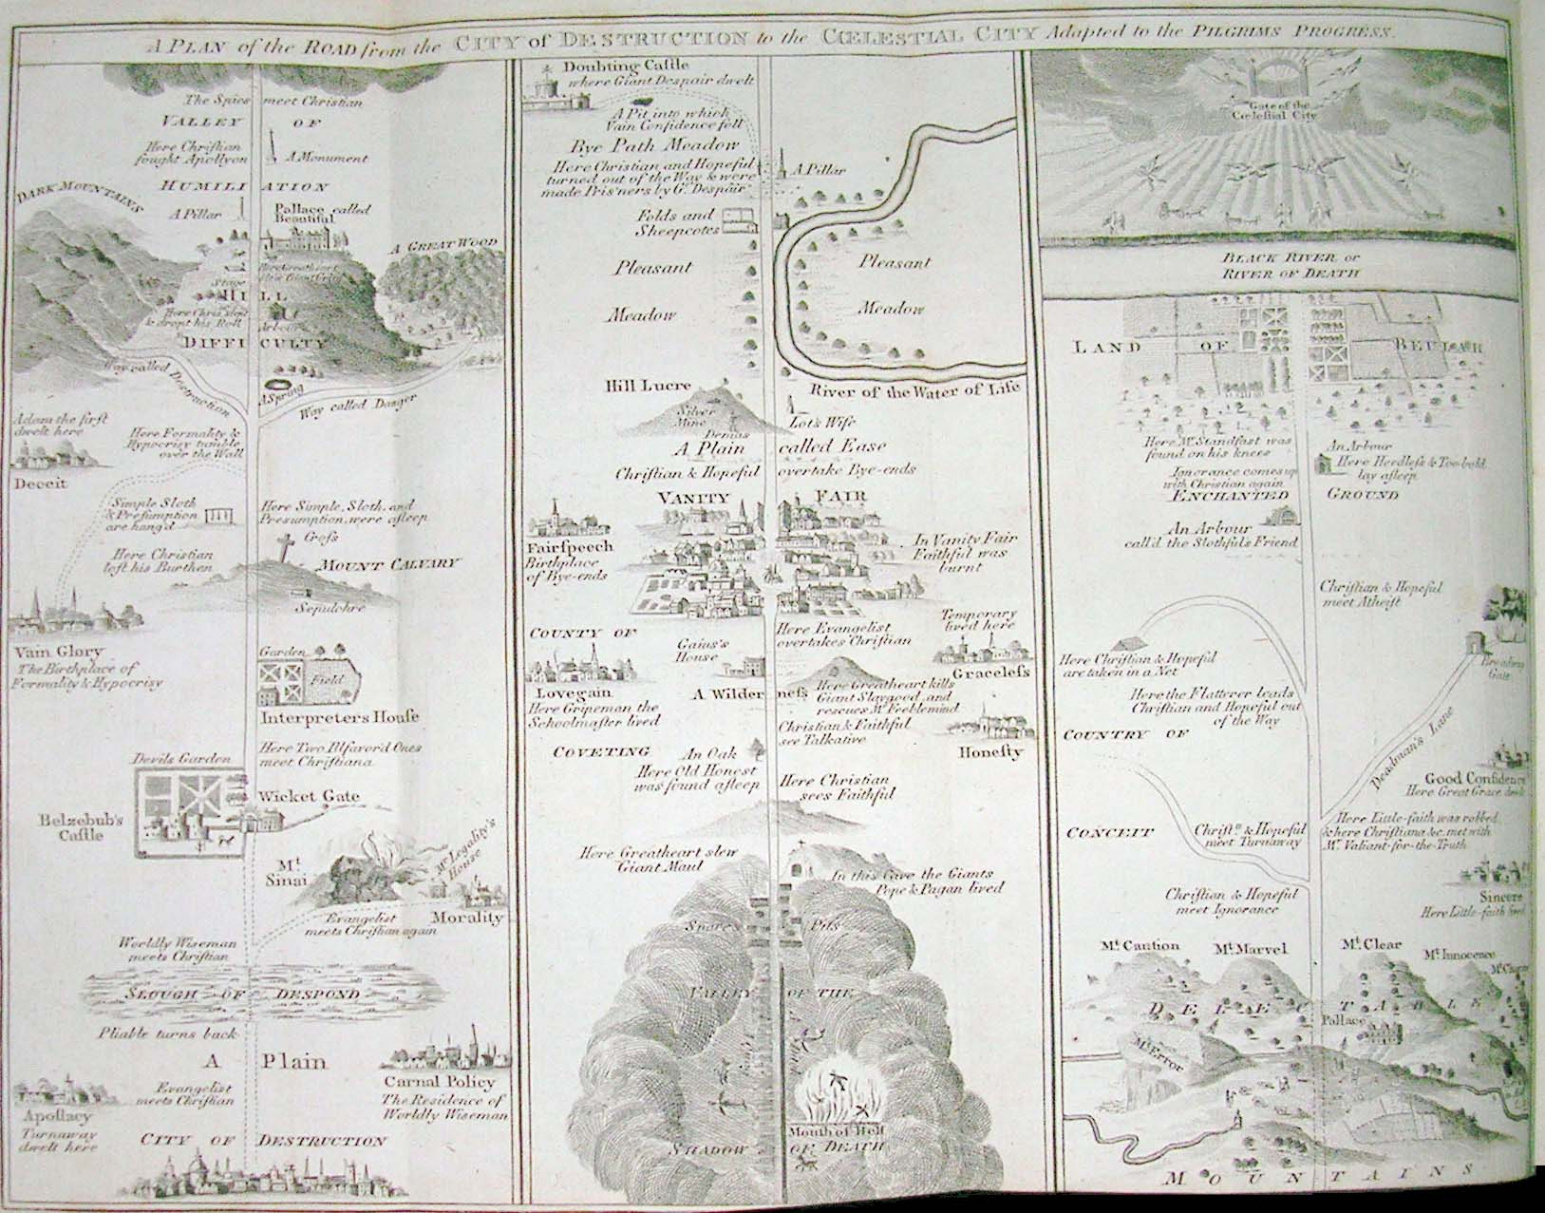 A PLAN of the ROAD from the CITY of DESTRUCTION to the CŒLESTIAL CITY Adapted to the PILGRIMS PROGRESS.
The Spies meet Christian
VALLEY OF
Here Christian
fought Apollyon
A Monument
HUMILIATION
DARK MOUNTAINS
A Pillar
Pallace called
Beautiful
A GREAT WOOD
Stage
HILL
Here Chris. slept
& dropt his Roll
Arbour
DIFFICULTY
Way called Destruction
A Spring
Way called Danger
Adam the first
dwelt here
Deceit
Here Formality &
Hypocrisy tumble
over the Wall
Simple Sloth
& Presumption
are hang'd
Here Simple, Sloth, and
Presumption, were asleep
Cross
Here Christian
left his Burthen
MOUNT CALVARY
Sepulchre
Vain Glory
The Birthplace of
Formality & Hypocrisy
Garden
Field
Interpreters House
Here Two Ilfavor'd Ones
meet Christiana
Devils Garden
Wicket Gate
Belzebub's
Castle
Mt.
Sinai
Mr. Legality's
House
Evangelist
meets Christian again
Morality
Worldly Wiseman
meets Christian
SLOUGH OF DESPOND
Pliable turns back
A Plain
Carnal Policy
The Residence of
Worldly Wiseman
Evangelist
meets Christian
Apostacy
Turnaway
dwelt here
CITY OF DESTRUCTION
Doubting Castle
where Giant Despair dwelt
A Pit into which
Vain Confidence fell
Bye Path Meadow
Here Christian and Hopeful
turned out of the Way & were
made Pris'ners by G. Despair
A Pillar
Folds and
Sheepcotes
Pleasant Pleasant
Meadow Meadow
Hill Lucre
River of the Water of Life
Silver
Mine
Demas
Lot's Wife
A Plain called Ease
Christian & Hopeful overtake Bye-ends
VANITY FAIR
Fairspeech
Birthplace
of Bye-ends
In Vanity Fair
Faithful was
burnt
Temporary
lived here
COUNTY OF
Here Evangelist
overtakes Christian
Gaius's
House
Graceless
Lovegain
Here Gripeman the
Schoolmaster lived
A Wilderness
Here Greatheart kills
Giant Slaygood, and
rescues Mr. Feeblemind
Christian & Faithful
see Talkative
Honesty
COVETING
An Oak
Here Old Honest
was found asleep
Here Christian
sees Faithful
Here Greatheart slew
Giant Maul
In this Cave the Giants
Pope & Pagan lived
Snares Pits
VALLEY OF THE
Mouth of Hell
SHADOW OF DEATH
Gate of the
Cœlestial City
BLACK RIVER or
RIVER OF DEATH
LAND OF BEULAH
Here Mr. Standfast was
found on his knees
An Arbour
Here Heedless & Too-bold
lay asleep
Ignorance comes up
with Christian again
ENCHANTED GROUND
An Arbour
call'd the Slothfuls Friend
Christian & Hopeful
meet Atheist
Here Christian & Hopeful
are taken in a Net
Broadway
Gate
Here the Flatterer leads
Christian and Hopeful out
of the Way
COUNTRY OF
Deadman's Lane
Good Confidence
Here Great Grace dwelt
CONCEIT
Christn. & Hopeful
meet Turnaway
Here Little-faith was robbed
& here Christiana &c. met with
Mr. Valiant-for-the-Truth
Christian & Hopeful
meet Ignorance
Sincere
Here Little-faith lived
Mt. Caution
Mt. Marvel
Mt. Clear
Mt. Innocence
DELECTABLE
Pallace
Mt. Error
MOUNTAINS